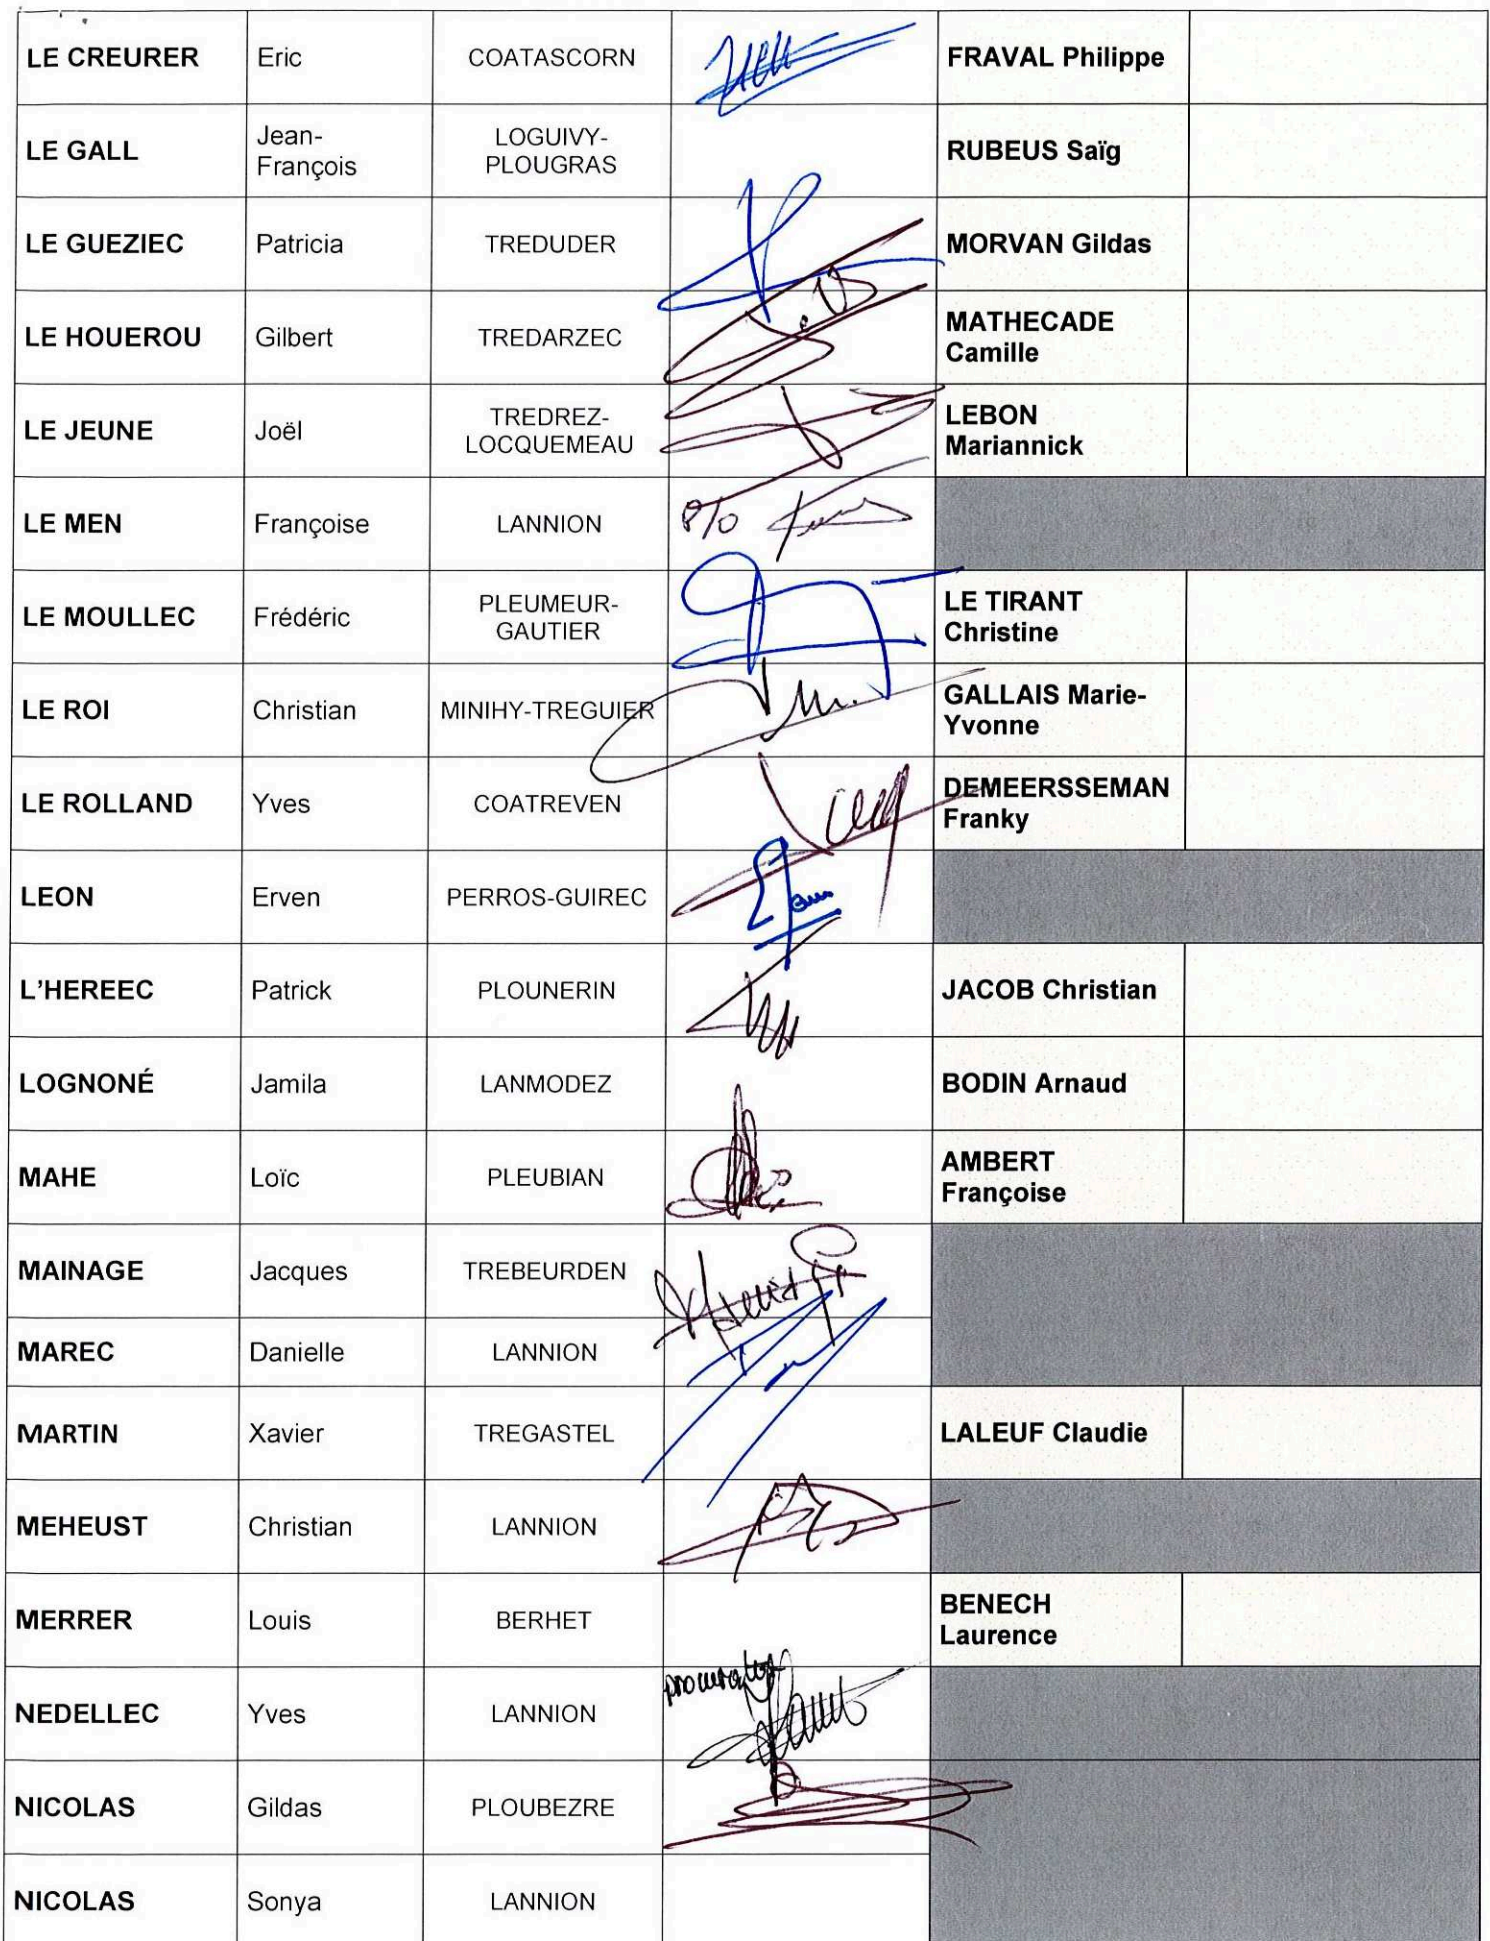 LE CREURER Eric COATASCORN FRAVAL Philippe
LE GALL Jean-
François LOGUIVY-
PLOUGRAS RUBEUS Saïg
LE GUEZIEC Patricia TREDUDER MORVAN Gildas
LE HOUEROU Gilbert TREDARZEC MATHECADE
Camille
LE JEUNE Joël TREDREZ-
LOCQUEMEAU LEBON
Mariannick
LE MEN Françoise LANNION P/O
LE MOULLEC Frédéric PLEUMEUR-
GAUTIER LE TIRANT
Christine
LE ROI Christian MINIHY-TREGUIER GALLAIS Marie-
Yvonne
LE ROLLAND Yves COATREVEN DEMEERSSEMAN
Franky
LEON Erven PERROS-GUIREC
L'HEREEC Patrick PLOUNERIN JACOB Christian
LOGNONÉ Jamila LANMODEZ BODIN Arnaud
MAHE Loïc PLEUBIAN AMBERT
Françoise
MAINAGE Jacques TREBEURDEN
MAREC Danielle LANNION
MARTIN Xavier TREGASTEL LALEUF Claudie
MEHEUST Christian LANNION
MERRER Louis BERHET BENECH
Laurence
NEDELLEC Yves LANNION procuration
NICOLAS Gildas PLOUBEZRE
NICOLAS Sonya LANNION